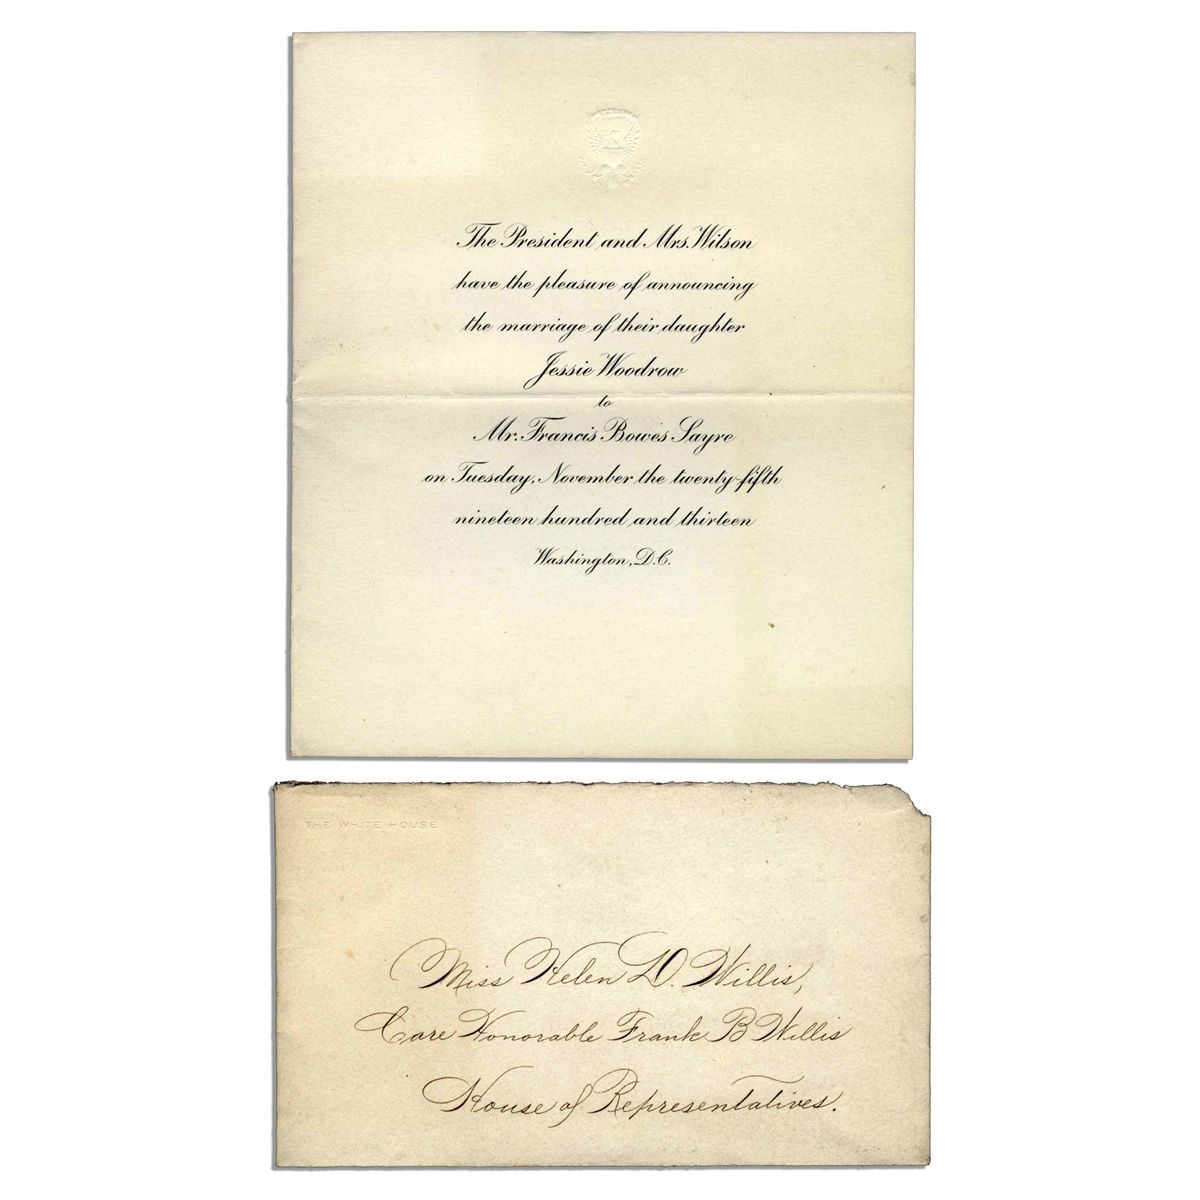 The President and Mrs. Wilson
have the pleasure of announcing
the marriage of their daughter
Jessie Woodrow
to
Mr. Francis Bowes Sayre
on Tuesday, November the twenty-fifth
nineteen hundred and thirteen
Washington, D.C.
THE WHITE HOUSE
Miss Helen D. Willis,
Care Honorable Frank B Willis
House of Representatives.